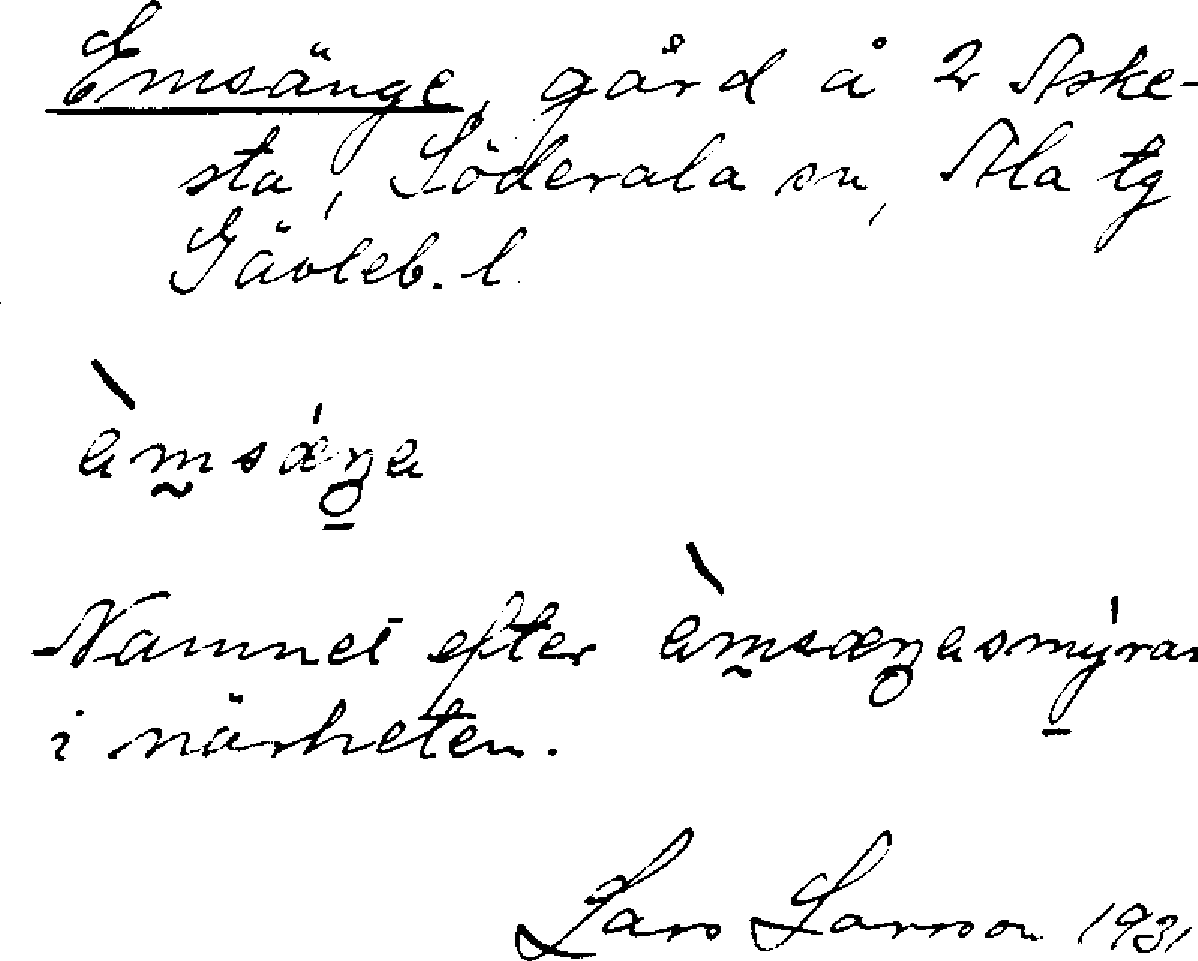 Emsänge, gård å 2 Aske-
sta, Söderala sn, Ala tg
Gävleb. l.
Namnet efter
i närheten.
Lars Larsson 1931